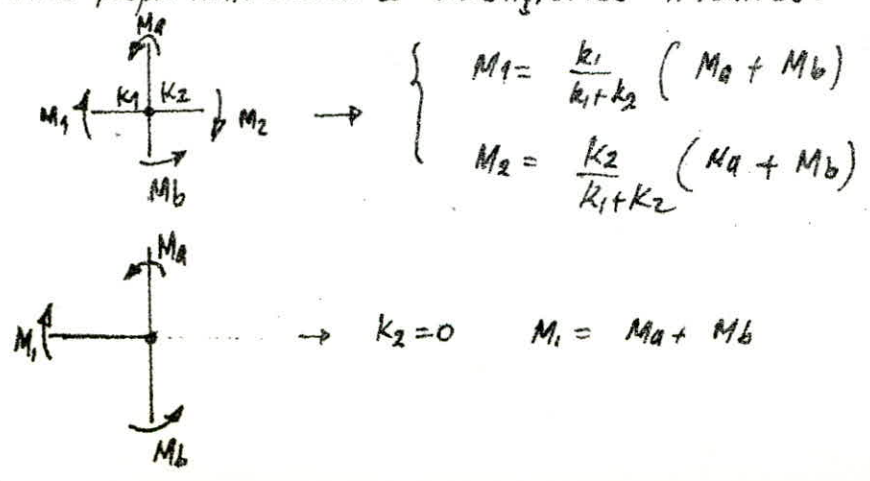 Ma
K1 K2
M1 M2
Mb
M1 = k1/(k1+k2) ( Ma + Mb )
M2 = K2/(K1+K2) ( Ma + Mb )
Ma
M1
Mb
→ K2 = 0 M1 = Ma + Mb